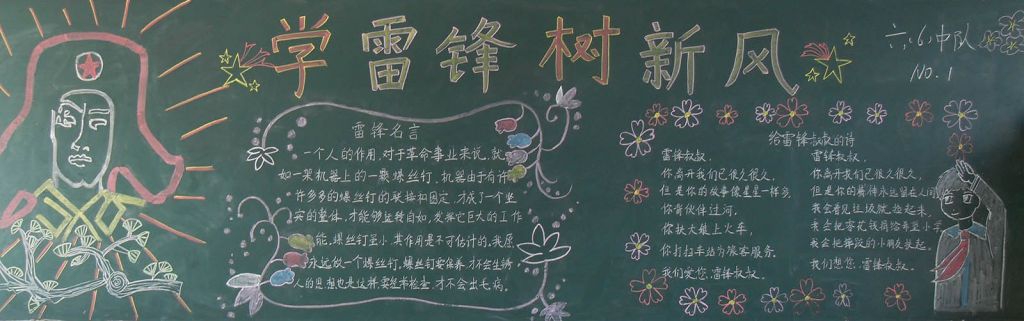 学雷锋树新风
六（6）中队
NO.1
雷锋名言
一个人的作用，对于革命事业来说，就
如一架机器上的一颗螺丝钉，机器由于有许
许多多的螺丝钉的联接和固定，才成了一个坚
实的整体，才能够运转自如，发挥它巨大的工作
能，螺丝钉虽小，其作用是不可估计的，我愿
永远做一个螺丝钉，螺丝钉要保养，才不会生锈，
人的思想也是这样，要经常检查，才不会出毛病。
给雷锋叔叔的诗
雷锋叔叔，
你离开我们已很久很久，
但是你的故事像星星一样多，
你背伙伴过河，
你扶大娘上火车，
你打扫车站为旅客服务。
我们爱您，雷锋叔叔。
雷锋叔叔，
你离开我们已很久很久，
但是你的精神永远留在人间
我会看见垃圾就捡起来，
我会把零花钱捐给希望小学
我会把摔跤的小朋友扶起，
我们想您，雷锋叔叔。